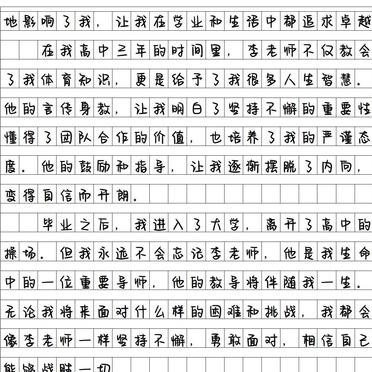 地影响了我，让我在学业和生活中都追求卓越
在我高中三年的时间里，李老师不仅教会
了我体育知识，更是给予了我很多人生智慧。
他的言传身教，让我明白了坚持不懈的重要性
懂得了团队合作的价值，也培养了我的严谨态
度。他的鼓励和指导，让我逐渐摆脱了内向，
变得自信而开朗。
毕业之后，我进入了大学，离开了高中的
操场。但我永远不会忘记李老师，他是我生命
中的一位重要导师，他的教导将伴随我一生。
无论我将来面对什么样的困难和挑战，我都会
像李老师一样坚持不懈，勇敢面对，相信自己
能够战胜一切